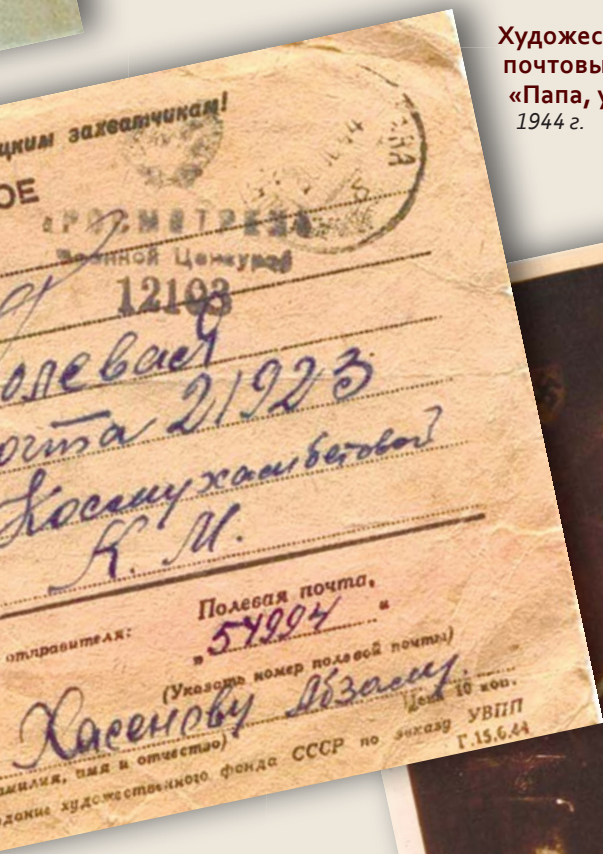 Художес
почтовы
«Папа, у
1944 г.
цким захватчикам!
ОЕ
ПРОСМОТРЕНО
Военной Цензурой
12103
олевая
очта 21923
Космухамбетовой
К. М.
Полевая почта,
отправителя:
„ 54994 “
(Указать номер полевой почты)
Хасенову Абзалу.
Цена 10 коп.
амилия, имя и отчество)
здание художественного фонда СССР по заказу УВПП
Г.15.6.44